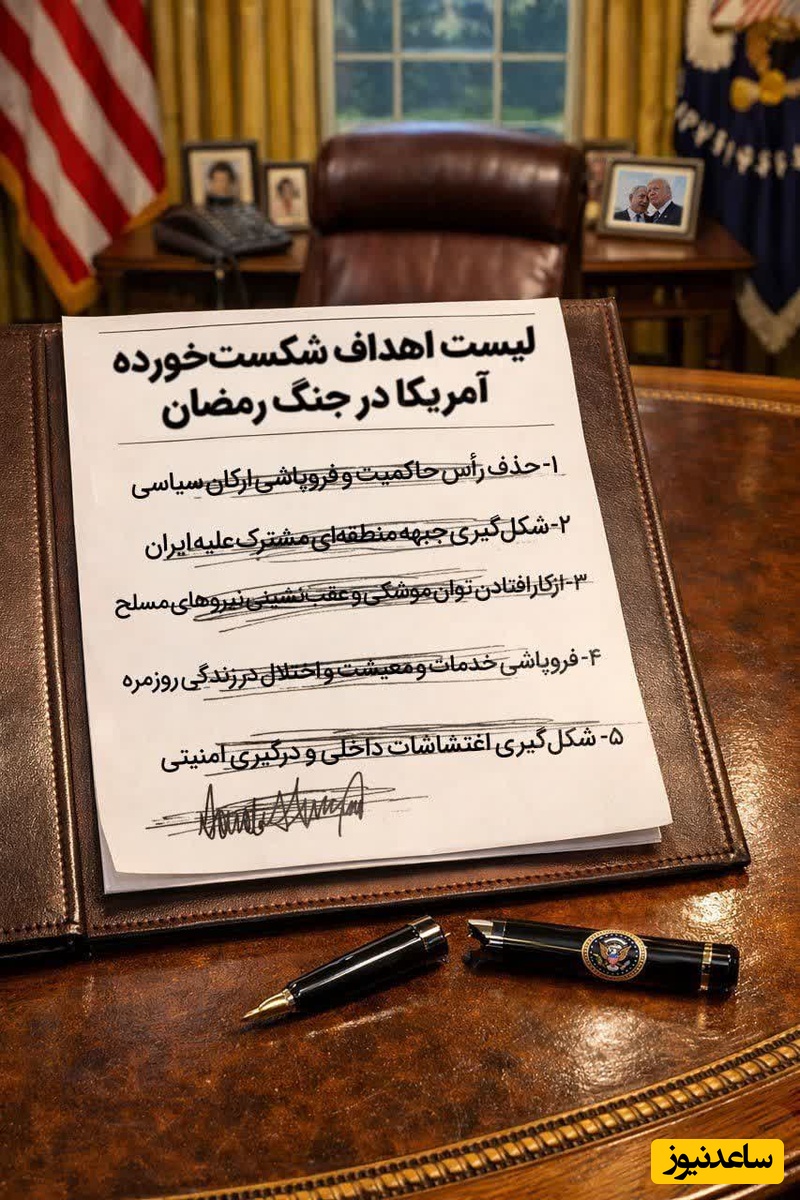 لیست اهداف شکست‌خورده
آمریکا در جنگ رمضان
۱- حذف رأس حاکمیت و فروپاشی ارکان سیاسی
۲- شکل‌گیری جبهه منطقه‌ای مشترک علیه ایران
۳- ازکارافتادن توان موشکی و عقب‌نشینی نیروهای مسلح
۴- فروپاشی خدمات و معیشت و اختلال در زندگی روزمره
۵- شکل‌گیری اغتشاشات داخلی و درگیری امنیتی
ساعدنیوز